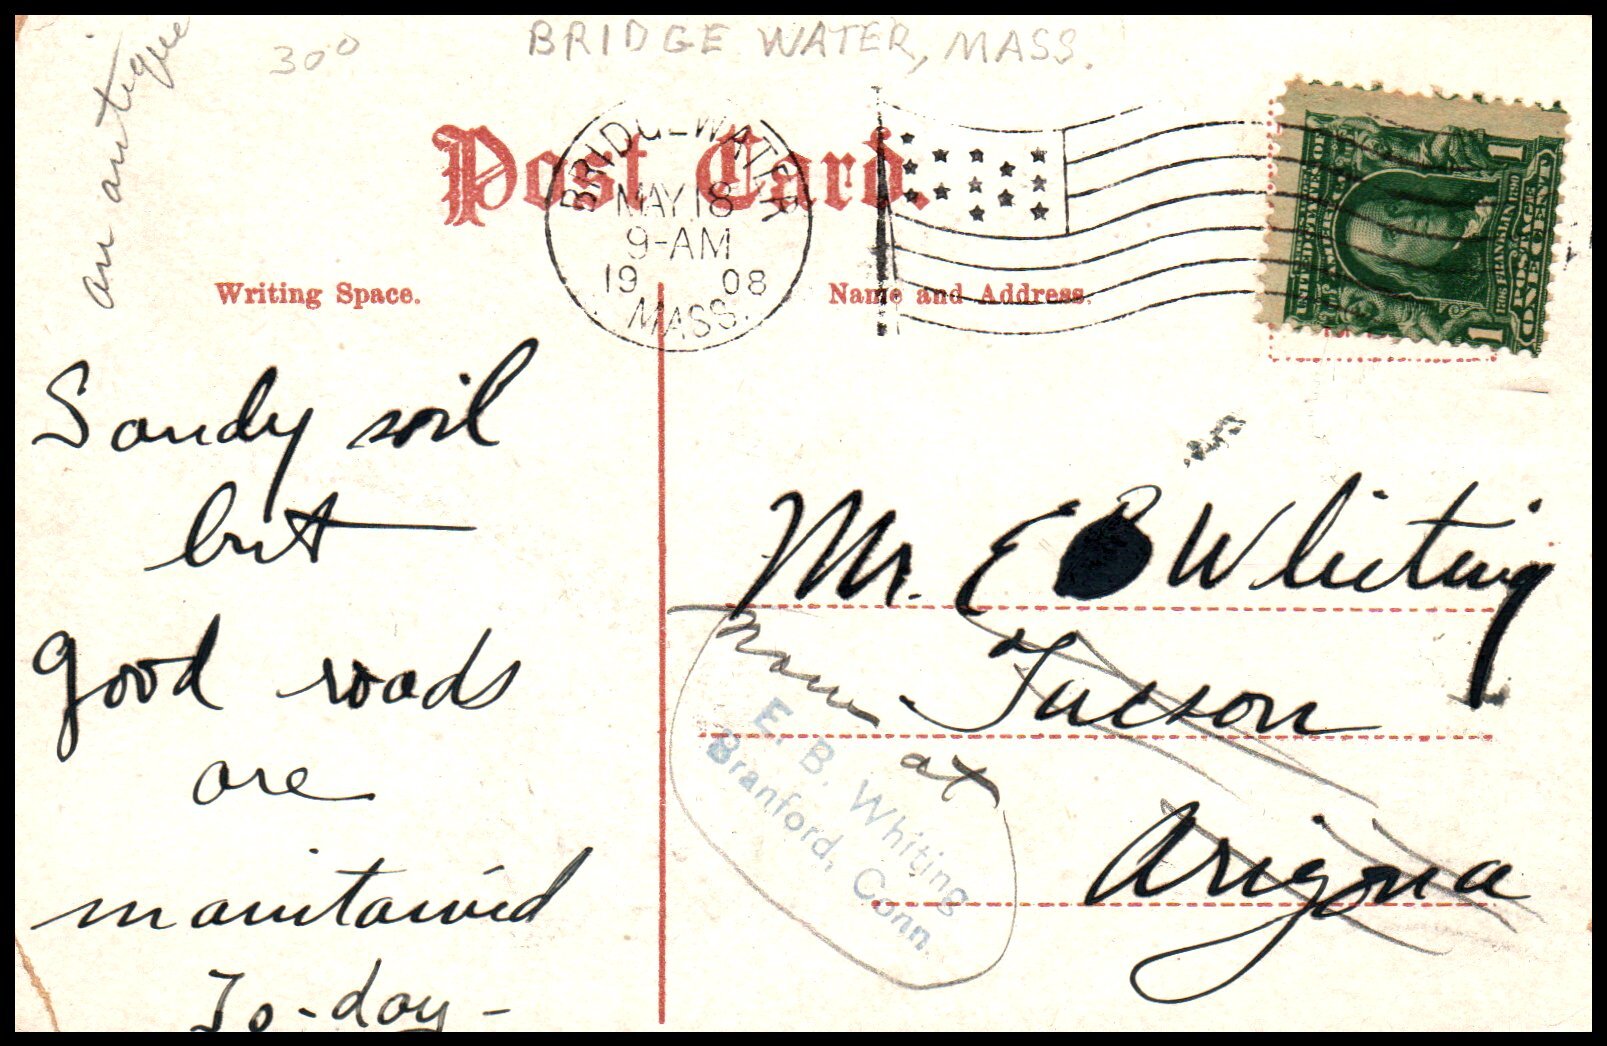 an antique
30⁰
BRIDGE WATER, MASS.
Post Card.
BRIDGEWATER
MAY 18
9-AM
19 08
MASS.
UNITED STATES OF AMERICA
1 1
POSTAGE
ONE CENT
Writing Space.
Name and Address.
Sandy soil
but
good roads
are
maintained
To-day -
Mr. E B Whiting
Tucson
Arizona
now
at
E. B. Whiting
Branford, Conn.